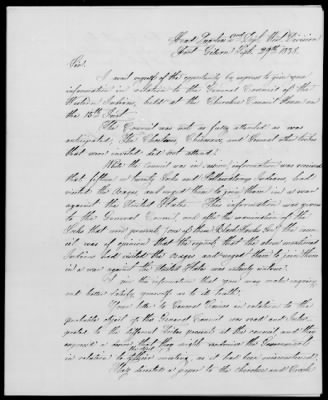 Head Quarters 2nd Dept. West. Division
Fort Gibson Sept. 29th 1838.
Sir:
I avail myself of the opportunity by express to give you
information in relation to the General Council of the
Western Indians, held at the Cherokee Council House on
the 15th Inst.
The Council was not as fully attended as was
anticipated. The Choctaws, Chickasaws, and several other tribes
that were invited did not attend.
While the council was in session, information was received
that fifteen or twenty Sacs and Pottawatamy Indians, had
visited the Osages and urged them to join them in a war
against the United States. This information was given
to the General Council, and after the examination of the
Sacs that were present, (one of them Black Hawks Son) the coun-
cil was of opinion that the report, that the above mentioned
Indians had visited the Osages and urged them to join them
in a war against the United States was entirely untrue.
I give the information that you may make inquiry
and better satisfy yourself as to its truth.
Your letter to General Cass in relation to the
probable object of the General Council was read and inter-
preted to the different tribes present at the council and they
expressed a desire that they might undeceive the Government
in relation to their meeting, as it had been misconceived.
They directed a paper to the Cherokee and Creek